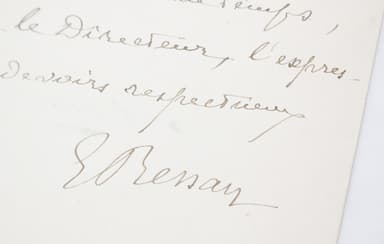 temps,
le Directeur, l'expres-
devoirs respectueux